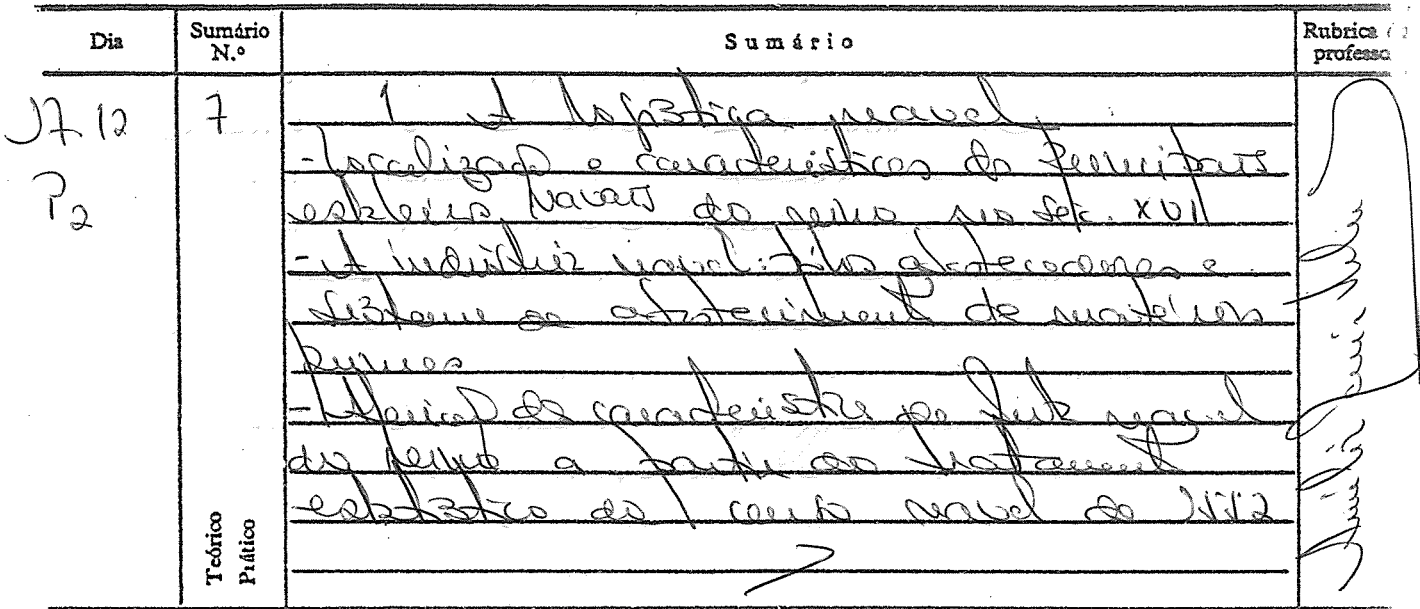 Dia Sumário N.º Sumário Rubrica professo
17 12 7 1 A logística naval
P2 - Localização e características dos principais
estaleiros navais do reino no séc. XVI
- A indústria naval: abastecedores e
sistema de abastecimento de matérias
primas
- características da frota naval
do reino a partir do tratamento
estatístico do censo naval de 1552
Teórico
Prático